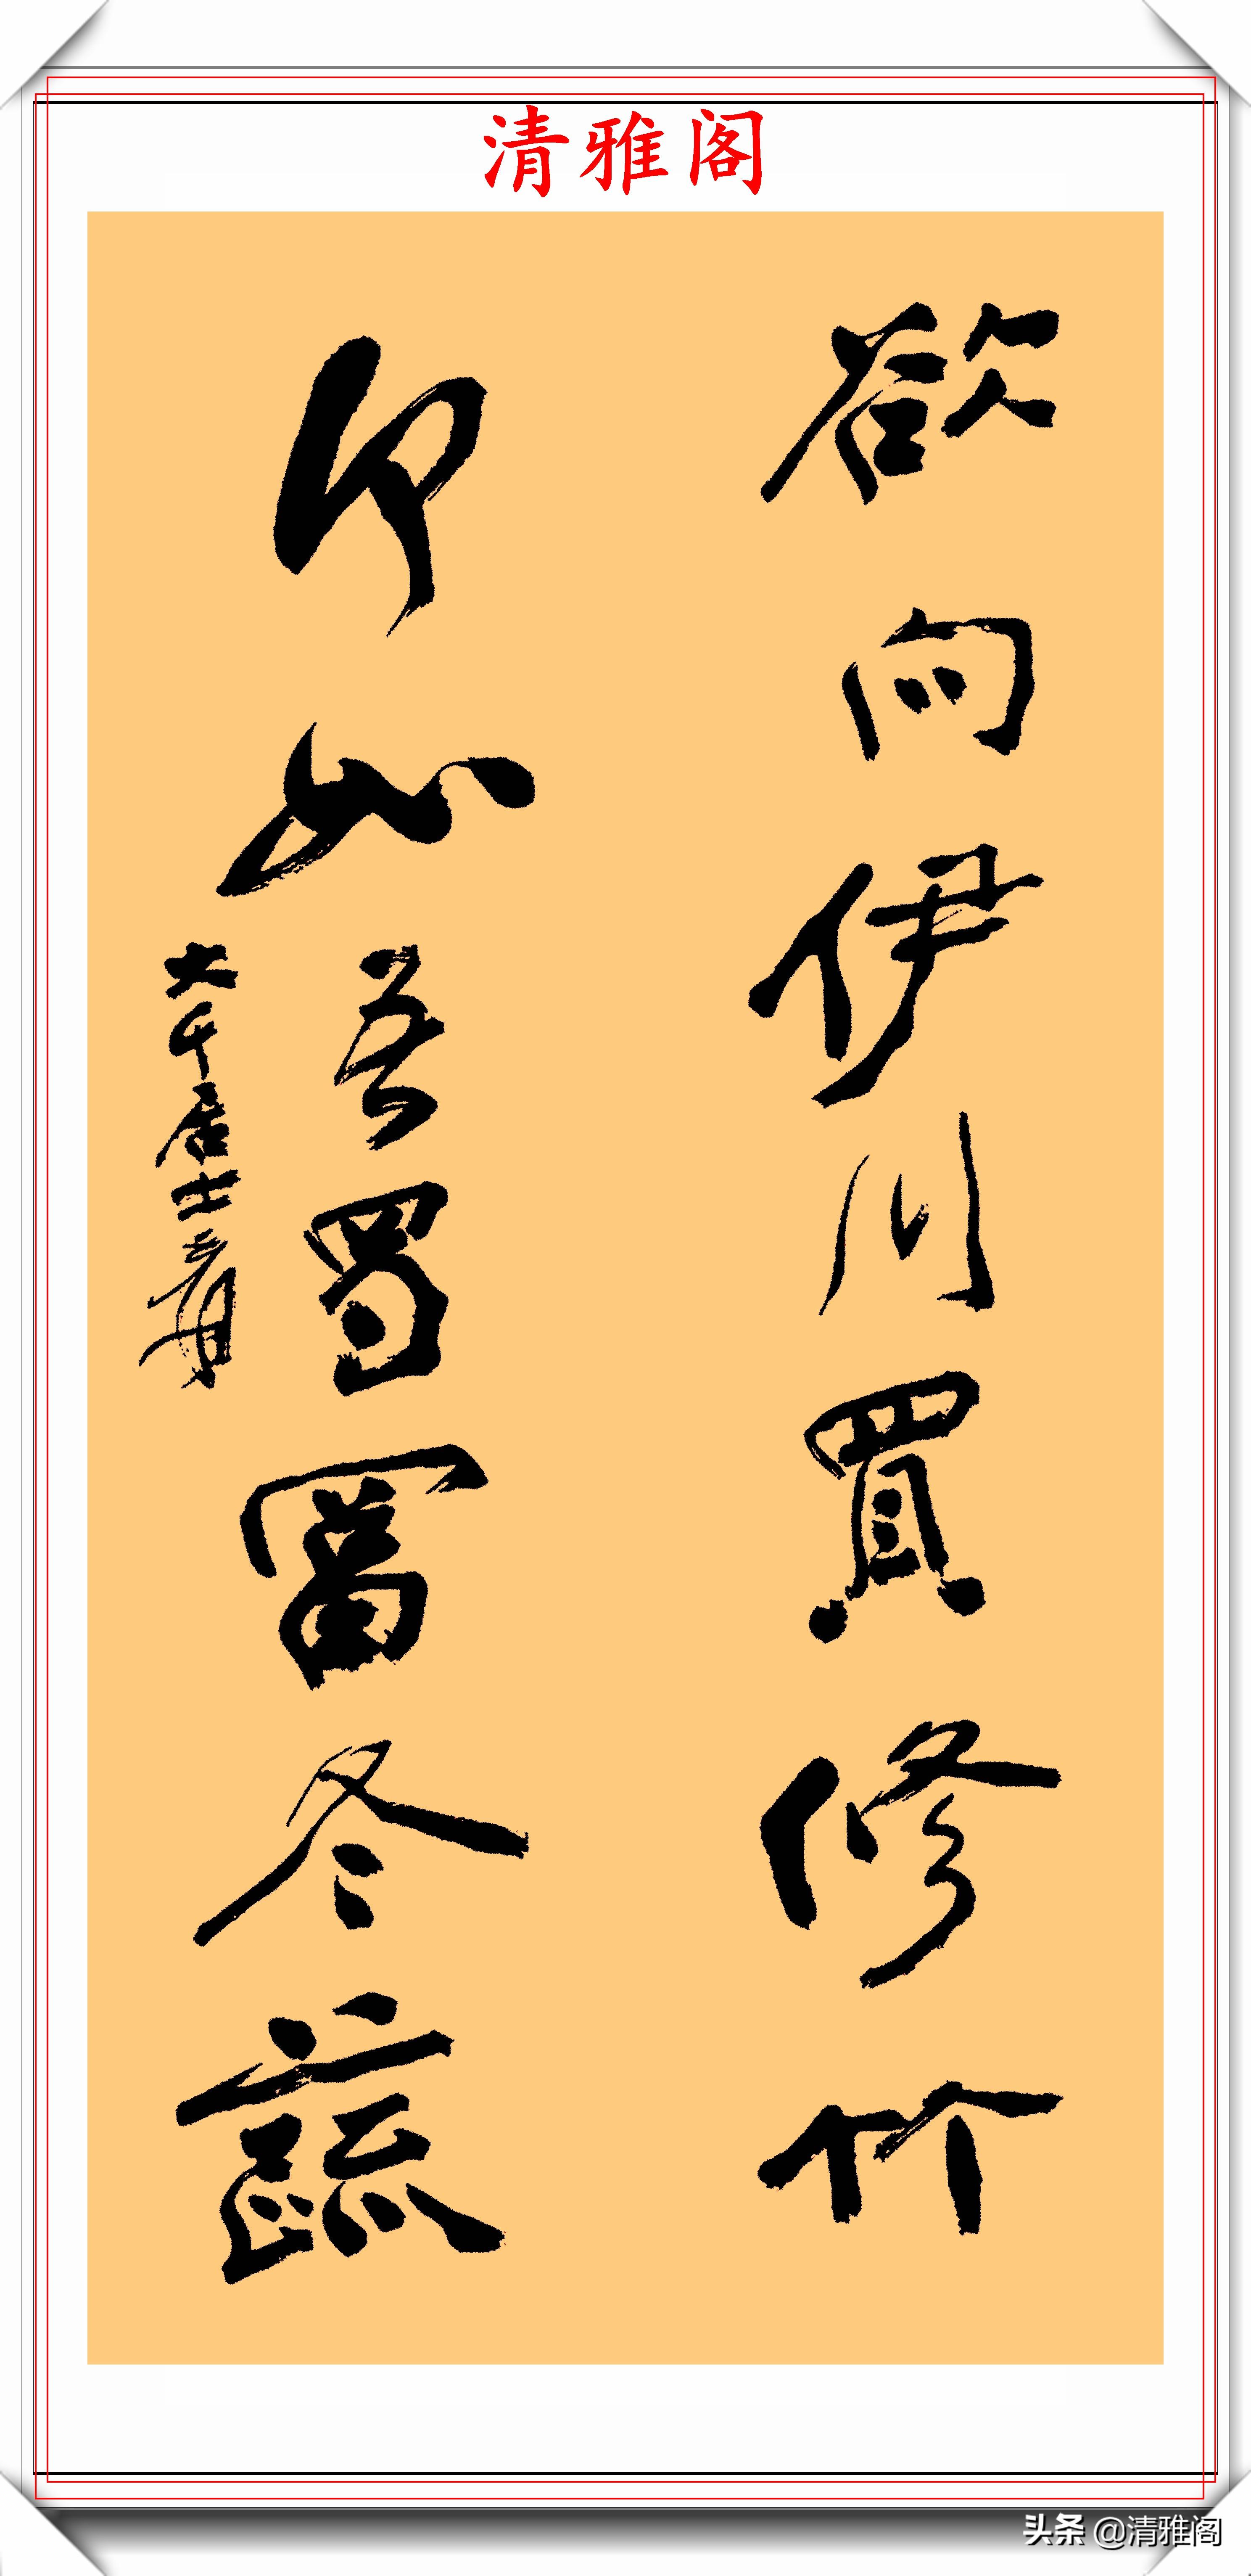 清雅阁
欲向伊川買修竹
如吾蜀富冬蔬
大千居士爰
头条 @清雅阁